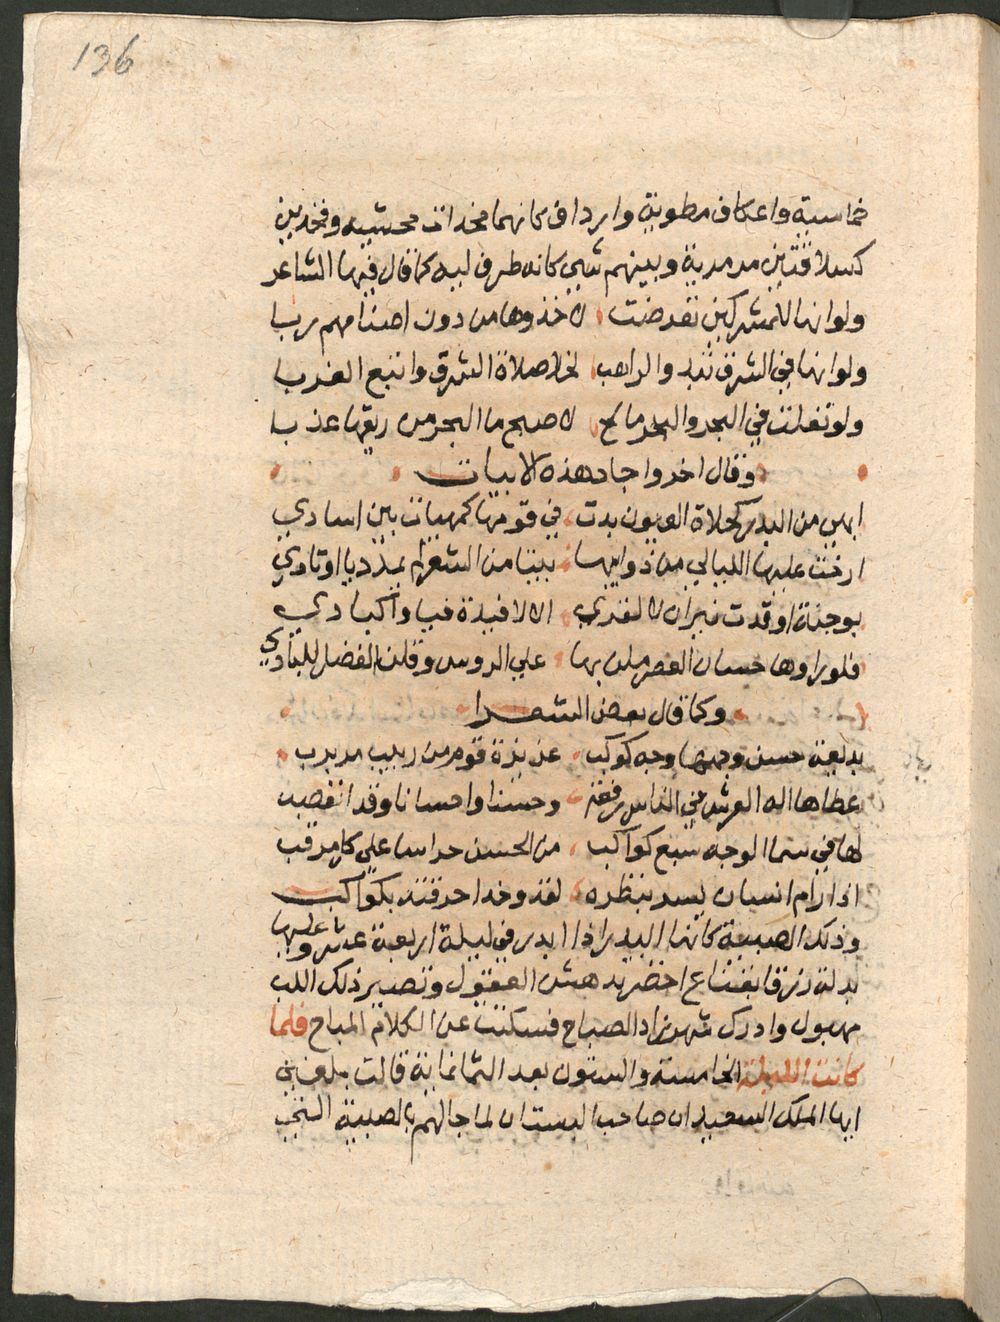 136
خماسية واعكاف مطوية وارداف كانهما مخدات محشيه وفخدين
كسلاقتين مرمرية وبينهم شي كانه طرف ليه كما قال فيها الشاعر
ولو انها للمشركين تعرضت لاخذوها من دون اصنامهم ربا
ولو انها في الشرق تبدو الراهب لخلا صلاة الشرق واتبع الغربا
ولو تفلت في البحر والبحر مالح لاصبح ما البحر من ريقها عذبا
وقال اخر واجاد هذه الابيات
ابهي من البدر كحلاة العيون بدت في قومها كمهيات بين اسادي
ارخت عليها الليالي من ذوايبها بيتا من الشعر لم يمدد باوتادي
بوجنة اوقدت نيران لا تغدي الا لافيدة فيها واكبادي
فلو راوها حسان العصر ملن بها علي الروس وقلن الفضل للبادي
وكما قال بعض الشعرا
بديعة حسن وجهها وجه كوكب عزيزة قوم من ربيب مربرب
عطاها اله العرش في الناس رفعة وحسنا واحسانا وقدا تقصب
لها في سما الوجه سبع كواكب من الحسن حراسا علي كل مرقب
اذا رام انسان يسر بنظره لغد وخدا حرقته بكواكب
وذلك الصبية كانها البدر اذا ابدر في ليلة اربعة عشر وعليها
بدلة زرقا بقناع اخضر يدهش العقول وتصير ذلك اللب
مهبول وادرك شهرزاد الصباح فسكتت عن الكلام المباح فلما
كانت الليلة الخامسة والستون بعد الثمانماية قالت بلغني
ايها الملك السعيد ان صاحب البستان لما جالهم بالصبية التي